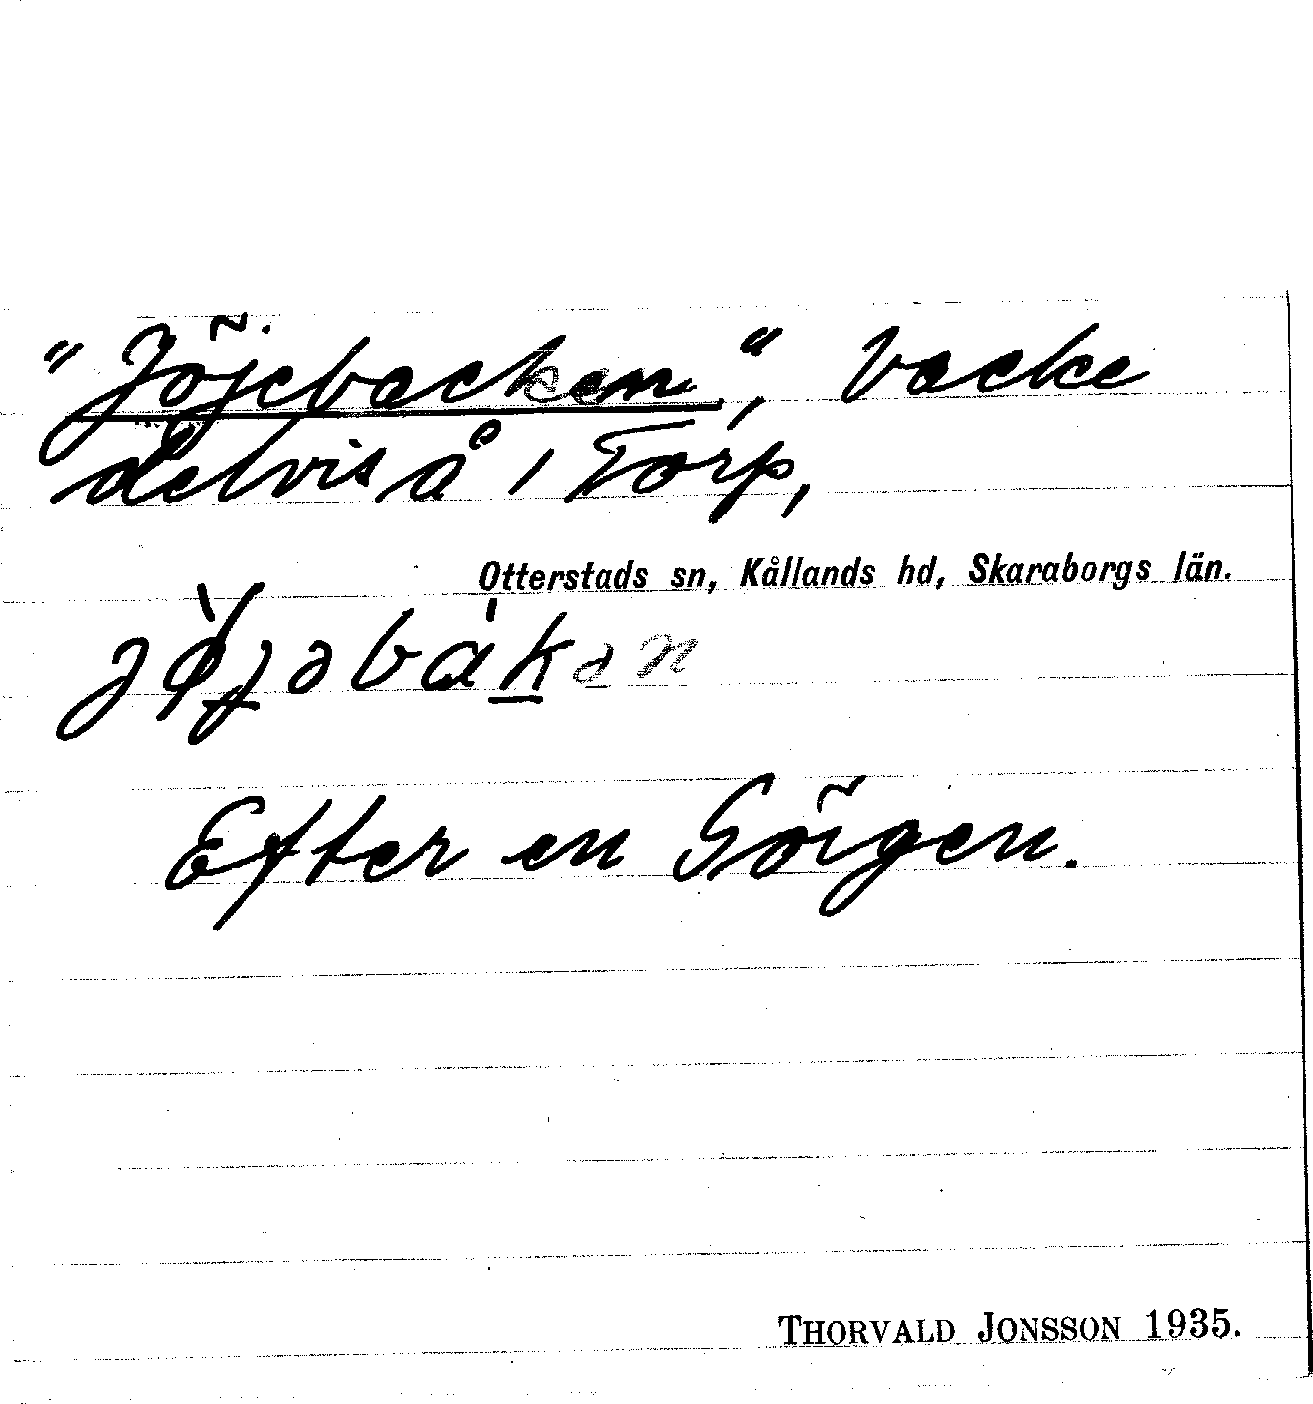 "Jöjebacken", backe
delvis å i Torp,
Otterstads sn, Kållands hd, Skaraborgs län.
Efter en Görgen.
THORVALD JONSSON 1935.